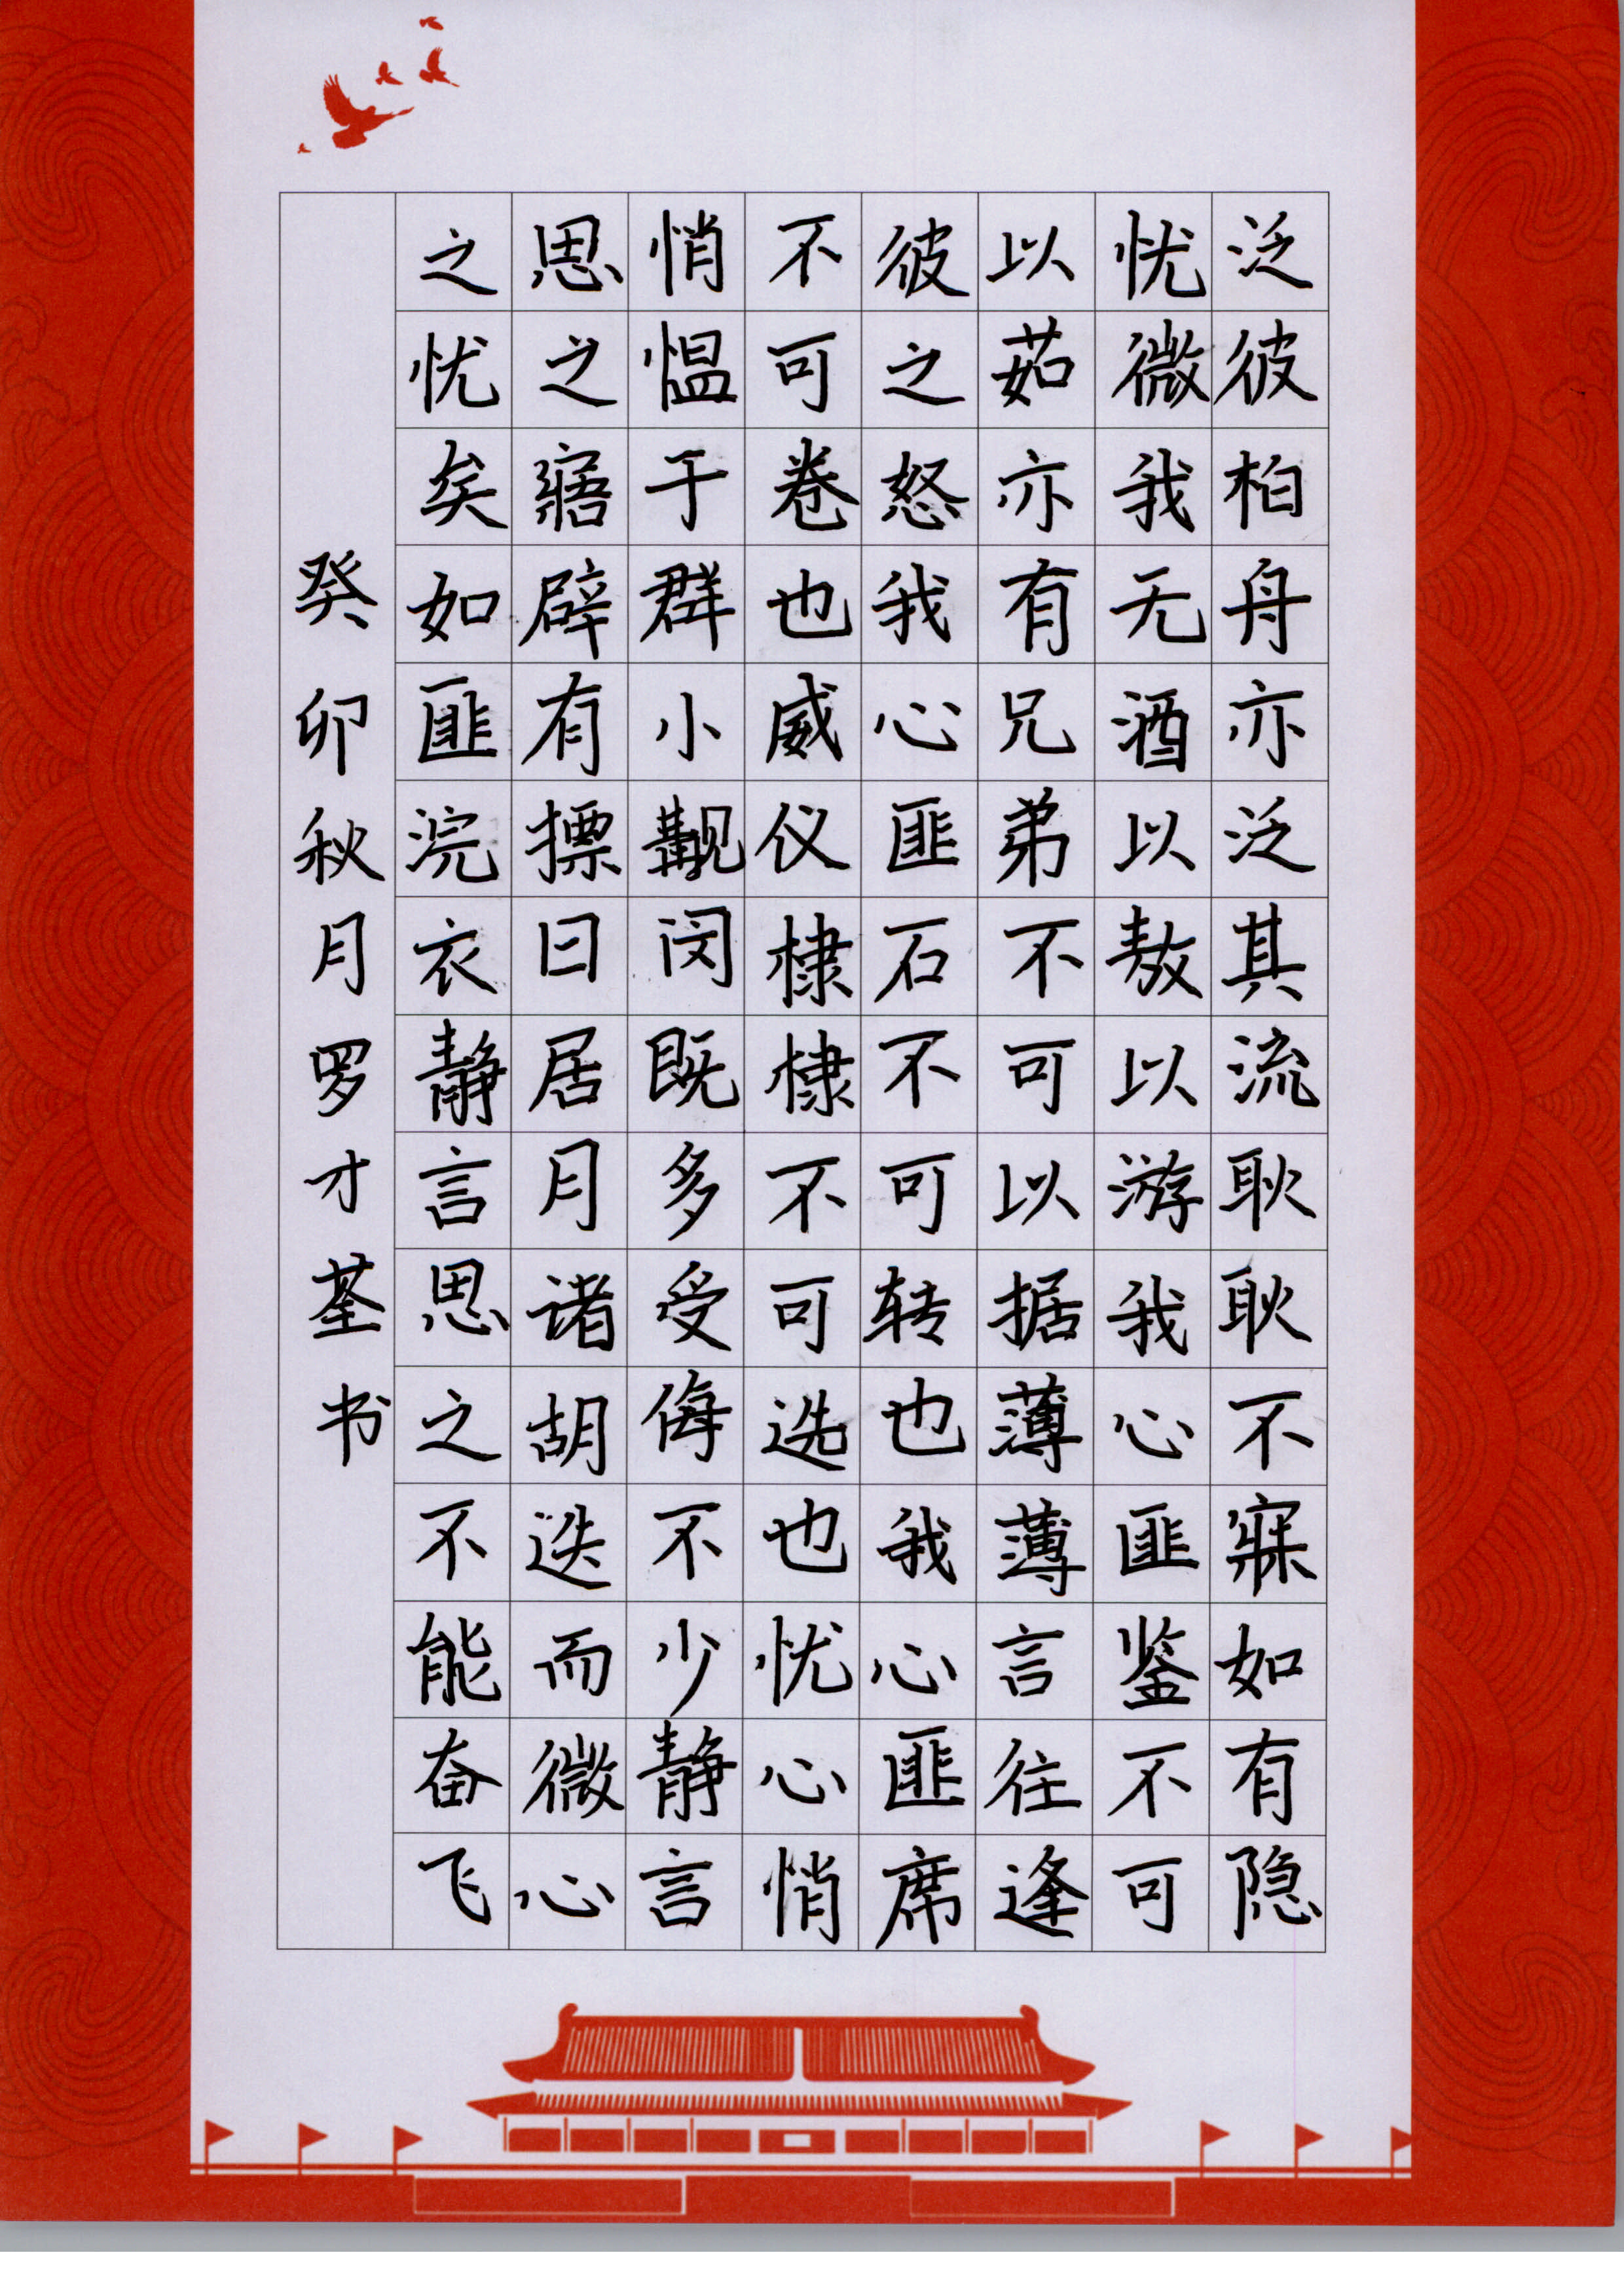 泛彼柏舟亦泛其流耿耿不寐如有隐
忧微我无酒以敖以游我心匪鉴不可
以茹亦有兄弟不可以据薄薄言往逢
彼之怒我心匪石不可转也我心匪席
不可卷也威仪棣棣不可选也忧心悄
悄愠于群小觏闵既多受侮不少静言
思之寤辟有摽日居月诸胡迭而微心
之忧矣如匪浣衣静言思之不能奋飞
癸卯秋月罗才荃书